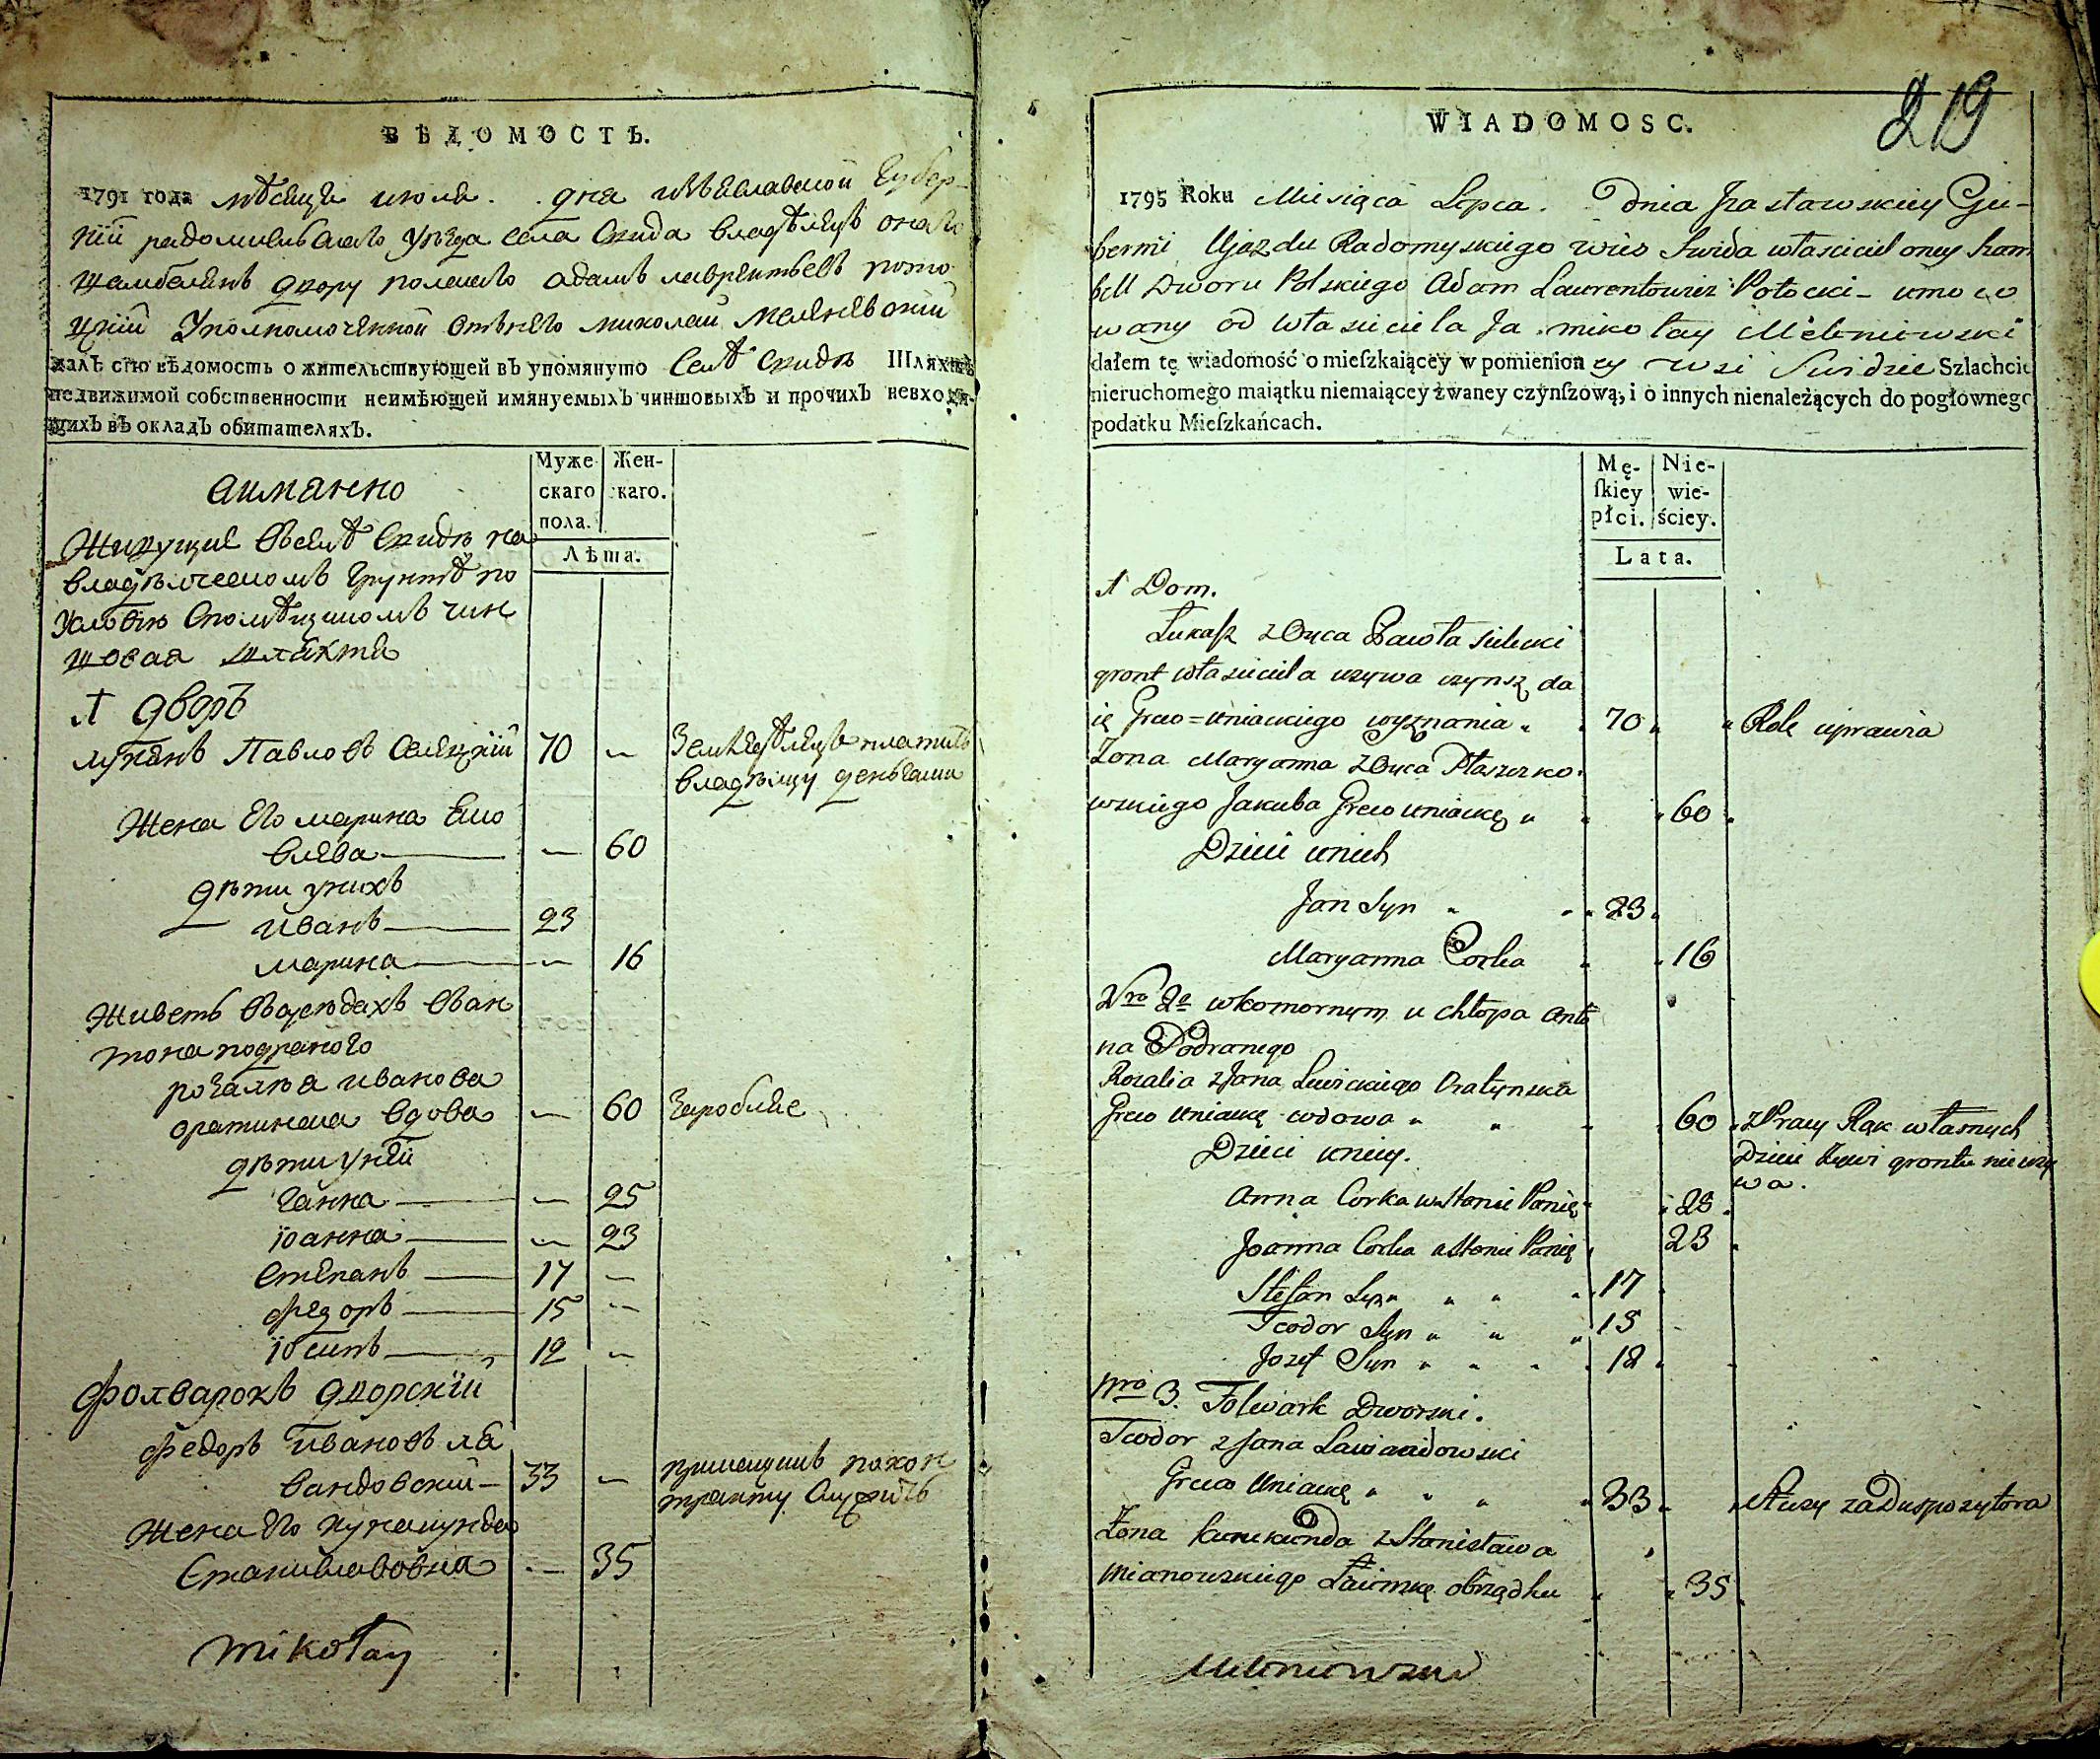 ВѢДОМОСТЬ.
1791 года мѣсяца июля . дня изъяславской губер-
нїи радомисльскаго уѣзда села свида владѣлецъ онаго
шамбелянъ двору полскаго адамъ лаврентьевъ пото
цкїй уполномоченной отънего миколай меленевский
далъ сїю вѣдомость о жительствующей въ упомянуто селѣ свидѣ Шляхтѣ
недвижимой собственности неимѣющей имянуемыхъ чиншовыхъ и прочихъ невходя-
щихъ въ окладъ обитателяхъ.
Муже скаго пола. Жен- каго.
Лѣта.
аимянно
Живущие вселѣ свидѣ на
владѣлческомъ грунтѣ по
условїю спомѣщикомъ чин
шовая шляхта
1 дворъ
лукянъ Павловъ Селецкїй 70 — Земледѣлецъ платитъ
владѣлцу деньгами
Жена его марина Яко
влева — 60
дѣти унихъ
иванъ 23
марина — 16
живетъ всусѣдахъ Єван
тона подраного
розалѣя иванова
оратинска вдова — 60 Заробкке
дѣти унеї
ганна — 25
їоанна — 23
степанъ 17 —
федоръ 15 —
їосипъ 12 —
фолварокъ дворскїй
федоръ Ивановъ ла
вандовский 33 —
жена его кунакунда
Станиславовна — 35
Mikołay
219
WIADOMOSC.
1795 Roku Miesiąca Lipca . Dnia Jzasławskiey Gu-
bernii Ujazdu Radomyskiego wieś Swida własciciel oney szam
bell Dworu Polskiego Adam Laurentowicz Potocki - umoco
wany od własciciela Ja mikołay Meleniewski
dałem tę wiadomość o mieſzkaiącey w pomienioney wsi Swidzie Szlachcie
nieruchomego maiątku niemaiącey zwaney czynſzową, i o innych nienależących do pogłownego
podatku Mieſzkańcach.
Mę- ſkiey płci. Nie- wie- ściey.
Lata.
1 Dom.
Łukasz z Oyca Pawła Sielecki
gront własciciela uzywa czynsz da
ię Greco=uniackiego wyznania 70 Role uprawia
Żona Maryanna z Oyca Ptaszczko-
wskiego Jakuba Greco uniackę 60
Dzieci unich
Jan Syn 23
Maryanna Corka 16
Nro 2o wkomornym u chłopa Anto
na Podranego
Rozalia z Jana Lewickiego Oratynska
Greco Uniackę wdowa 60 z Pracy Rąk własnych
Dzieci żywi grontu nie uzy
wa.
Dzieci uniey.
Anna Corka w Stanie Panię 25
Joanna Corka w Stanie Panię 23
Stefan Syn 17
Teodor Syn 15
Jozef Syn 12
Nro 3. Folwark Dworski.
Teodor z Jana Lawandowski
Greco Uniackę 33 Służy za Dyspozytora
Żona Kunekunda z Stanisława
Mianowskiego Łacinskę obrządku 35
Meleniewski